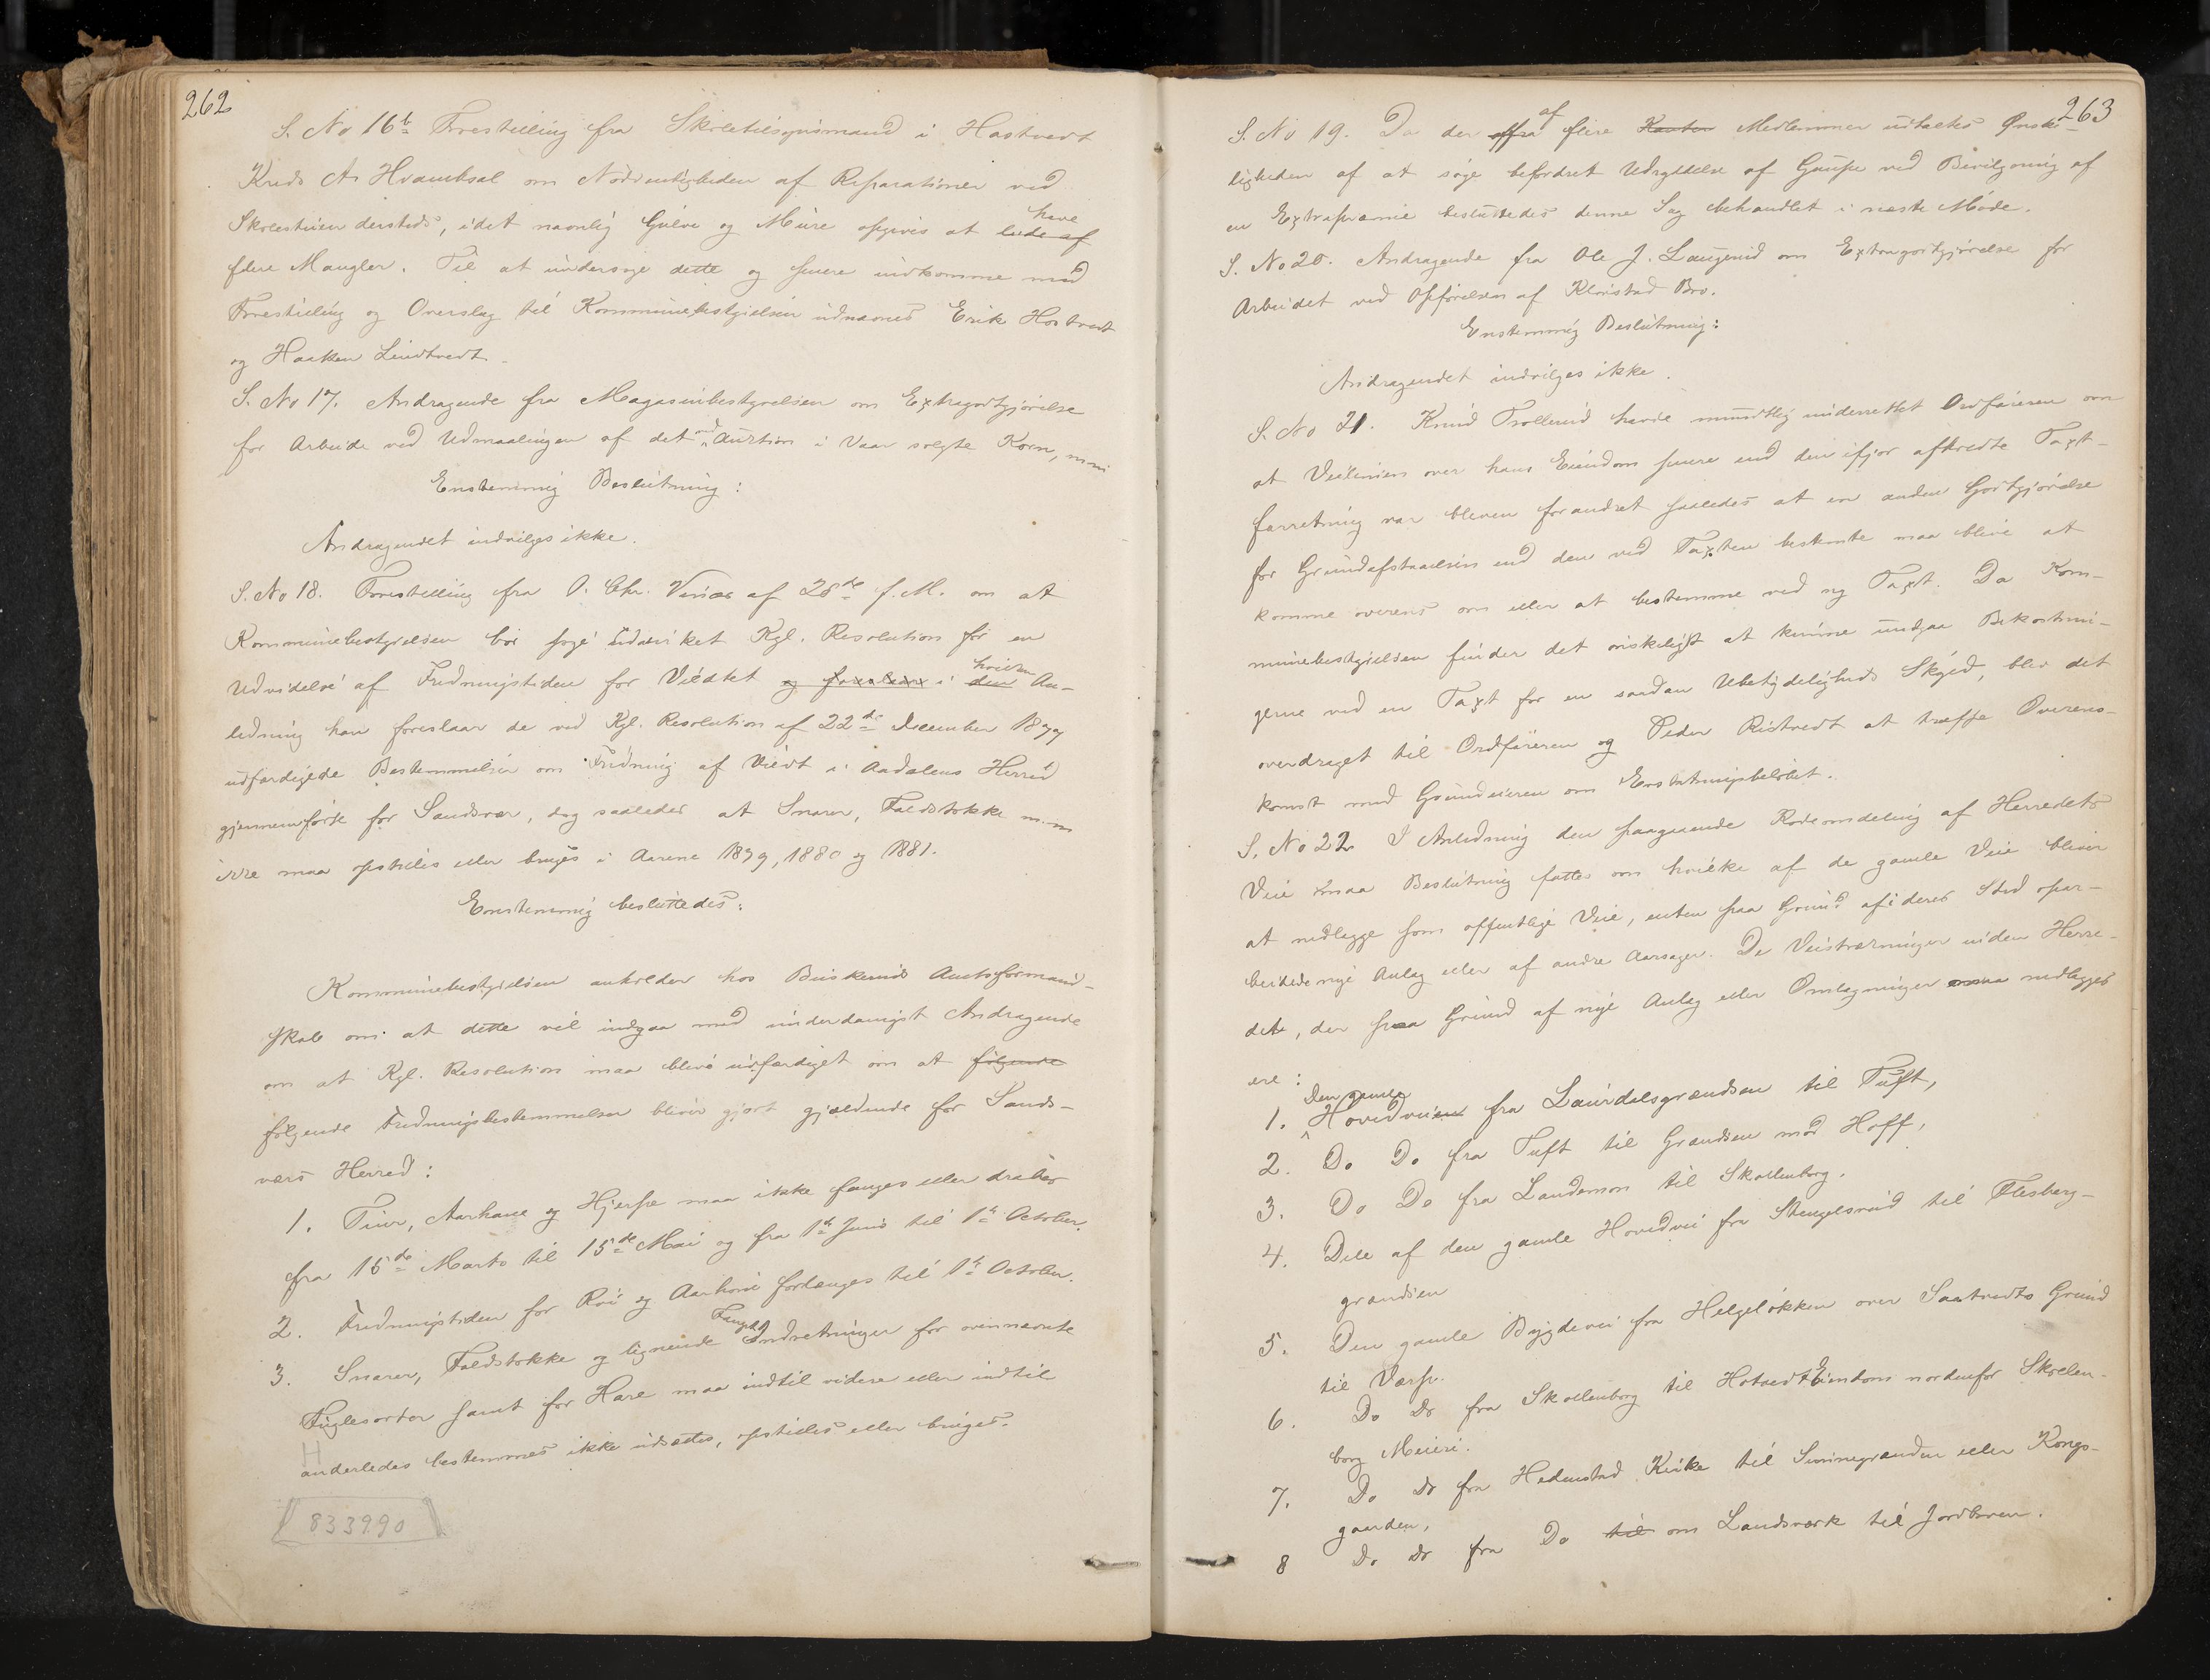 262
S. No 16b Forestilling fra Skoletilsynsmand i Hostvedt
Kreds A. Hvambsal om Nødvendigheden af Reparationer ved
Skolestuen dersteds, idet navnlig Gulve og Mure opgives at lide af have
flere Mangler. Til at undersøge dette og senere indkomme med
Forestilling og Overslag til Kommunebestyrelsen udnævnes Erik Hostvedt
og Haaken Lindtvedt.
S. No 17. Andragende fra Magasinbestyrelsen om Extragodtgjørelse
for Arbeide ved Udmaalingen af det ved Auktion i Vaar solgte Korn, m.m.
Enstemmig Beslutning:
Andragendet indvilges ikke.
S. No 18. Forestilling fra O. Chr. af 28de f. M. om at
Kommunebestyrelsen bør søge udvirket Kgl. Resolution for en
Udvidelse af Fredningstiden for Vildtet og foreslaar i den hvilken An-
ledning han foreslaar de ved Kgl. Resolution af 22de December 1877
udfærdigede Bestemmelser om Fredning af Vildt i Aadalens Herred
gjennemførte for Sandsvær, dog saaledes at Snarer, Faldstokke m.m
ikke maa opstilles eller bruges i Aarene 1879, 1880 og 1881.
Enstemmig besluttedes:
Kommunebestyrelsen anholder hos Buskeruds Amtsformand-
skab om at dette vil indgaa med underdanigst Andragende
om at Kgl. Resolution maa blive udfærdiget om at følgende
følgende Fredningsbestemmelser bliver gjort gjældende for Sands-
værs Herred:
1. Tiur, Aarhane og Hjerpe maa ikke fanges eller dræbes
fra 15de Marts til 15de Mai og fra 1ste Juni til 1ste October.
2. Fredningstiden for Røi og Aarhøne forlænges til 1ste October.
3. Snarer, Faldstokke og lignende Fangst Indretninger for ovennævnte
Fuglesorter samt for Hare maa indtil videre eller indtil
anderledes bestemmes ikke udsættes, opstilles eller bruges.
H
833990
263
S. No 19. Da der fra af flere Medlemmer udtaltes Ønske-
ligheden af at søge befordret Udryddelse af Gaupe ved Bevilgning af
en Extrapræmie besluttedes denne Sag behandlet i næste Møde.
S. No 20. Andragende fra Ole J. Laugerud om Extragodtgjørelse for
Arbeidet ved Opførelsen af Kløvstad Bro.
Enstemmig Beslutning:
Andragendet indvilges ikke.
S. No 21. Knud Trollerud havde mundtlig underrettet Ordføreren om
at Veilinien over hans Eiendom senere end den ifjor afholdte Taxt-
forretning var bleven forandret saaledes at en anden Godtgjørelse
for Grundafstaaelsen end den ved Taxten bestemte maa blive at
komme overens om eller at bestemme ved ny Taxt. Da Kom-
munebestyrelsen finder det ønskeligst at kunne undgaa Bekostnin-
gerne ved en Taxt for en saadan Ubetydeligheds Skyld, blev det
overdraget til Ordføreren og Peder Ristvedt at træffe Overens-
komst med Grundeieren om Erstatningsbeløbet.
S. No 22 I Anledning den paagaaende Rodeomdeling af Herredets
Veie maa Beslutning fattes om hvilke af de gamle Veie bliver
at nedlægge som offentlige Veie, enten paa Grund af i deres Sted opar-
beidede nye Anlæg eller af andre Aarsager. De Veistrækninger inden Herre-
det, der paa Grund af nye Anlæg eller Omlægninger maa nedlægges
ere:
1. Den gamle Hovedveien fra Laurdalsgrændsen til Tuft,
2. Do Do fra Tuft til Grændsen mod Hoff,
3. Do Do fra Landemon til Skollenborg.
4. Dele af den gamle Hovedvei fra Stengelsrud til Flesberg-
grændsen
5. Den gamle Bygdevei fra Helgeløkken over Saatvedts Grund
til
6. Do Do fra Skollenborg til Hotvedt Eiendom nordenfor Skollen-
borg Meieri.
7. Do Do fra Hedenstad Kirke til eller Kongs-
gaarden,
8 Do Do fra Do til om Landsværk til Jordbroen.